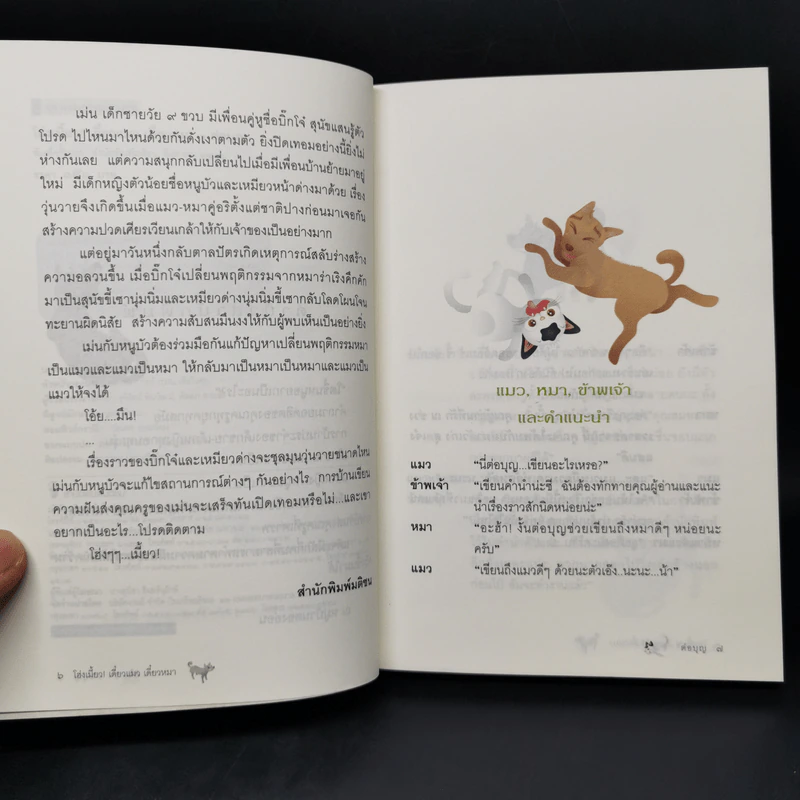 เม่น เด็กชายวัย ๙ ขวบ มีเพื่อนคู่หูชื่อบิ๊กโจ๋ สุนัขแสนรู้ตัว
โปรด ไปไหนมาไหนด้วยกันดั่งเงาตามตัว ยิ่งปิดเทอมอย่างนี้ยิ่งไม่
ห่างกันเลย แต่ความสนุกกลับเปลี่ยนไปเมื่อมีเพื่อนบ้านย้ายมาอยู่
ใหม่ มีเด็กหญิงตัวน้อยชื่อหนูบัวและเหมียวหน้าด่างมาด้วย เรื่อง
วุ่นวายจึงเกิดขึ้นเมื่อแมว-หมาคู่อริตั้งแต่ชาติปางก่อนมาเจอกัน
สร้างความปวดเศียรเวียนเกล้าให้กับเจ้าของเป็นอย่างมาก
แต่อยู่มาวันหนึ่งกลับตาลปัตรเกิดเหตุการณ์สลับร่างสร้าง
ความอลวนขึ้น เมื่อบิ๊กโจ๋เปลี่ยนพฤติกรรมจากหมาร่าเริงคึกคัก
มาเป็นสุนัขขี้เซานุ่มนิ่มและเหมียวด่างนุ่มนิ่มขี้เซากลับโลดโผนโจน
ทะยานผิดนิสัย สร้างความสับสนมึนงงให้กับผู้พบเห็นเป็นอย่างยิ่ง
เม่นกับหนูบัวต้องร่วมมือกันแก้ปัญหาเปลี่ยนพฤติกรรมหมา
เป็นแมวและแมวเป็นหมา ให้กลับมาเป็นหมาเป็นหมาและแมวเป็น
แมวให้จงได้
โอ้ย...มึน!
...
เรื่องราวของบิ๊กโจ๋และเหมียวด่างจะชุลมุนวุ่นวายขนาดไหน
เม่นกับหนูบัวจะแก้ไขสถานการณ์ต่างๆ กันอย่างไร การบ้านเขียน
ความฝันส่งคุณครูของเม่นจะเสร็จทันเปิดเทอมหรือไม่...และเขา
อยากเป็นอะไร...โปรดติดตาม
โฮ่งๆๆ...เมี้ยว!
สำนักพิมพ์มติชน
๖ โฮ่งเมี้ยว! เดี๋ยวแมว เดี๋ยวหมา
แมว, หมา, ข้าพเจ้า
และคำแนะนำ
แมว "นี่ต่อบุญ...เขียนอะไรเหรอ?"
ข้าพเจ้า "เขียนคำนำน่ะซี ฉันต้องทักทายคุณผู้อ่านและแนะ
นำเรื่องราวสักนิดหน่อยน่ะ"
หมา "อะฮ้า! งั้นต่อบุญช่วยเขียนถึงหมาดีๆ หน่อยนะ
ครับ"
แมว "เขียนถึงแมวดีๆ ด้วยนะตัวเอ๊ง..นะนะ...น้า"
ต่อบุญ ๗